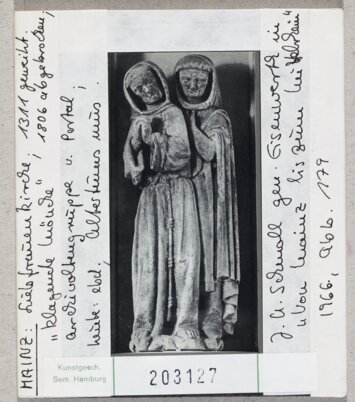 MAINZ: Liebfrauenkirche, 1311 geweiht.
"klagende Mönche"; 1806 abgebrochen;
Archivoltengruppe v. Portal;
heute: ebd., Altertums mus.
J. A. Schmoll gen. Eisenwerth in
"Von Mainz bis zum
1966, Abb. 179
Kunstgesch.
Sem. Hamburg
203127